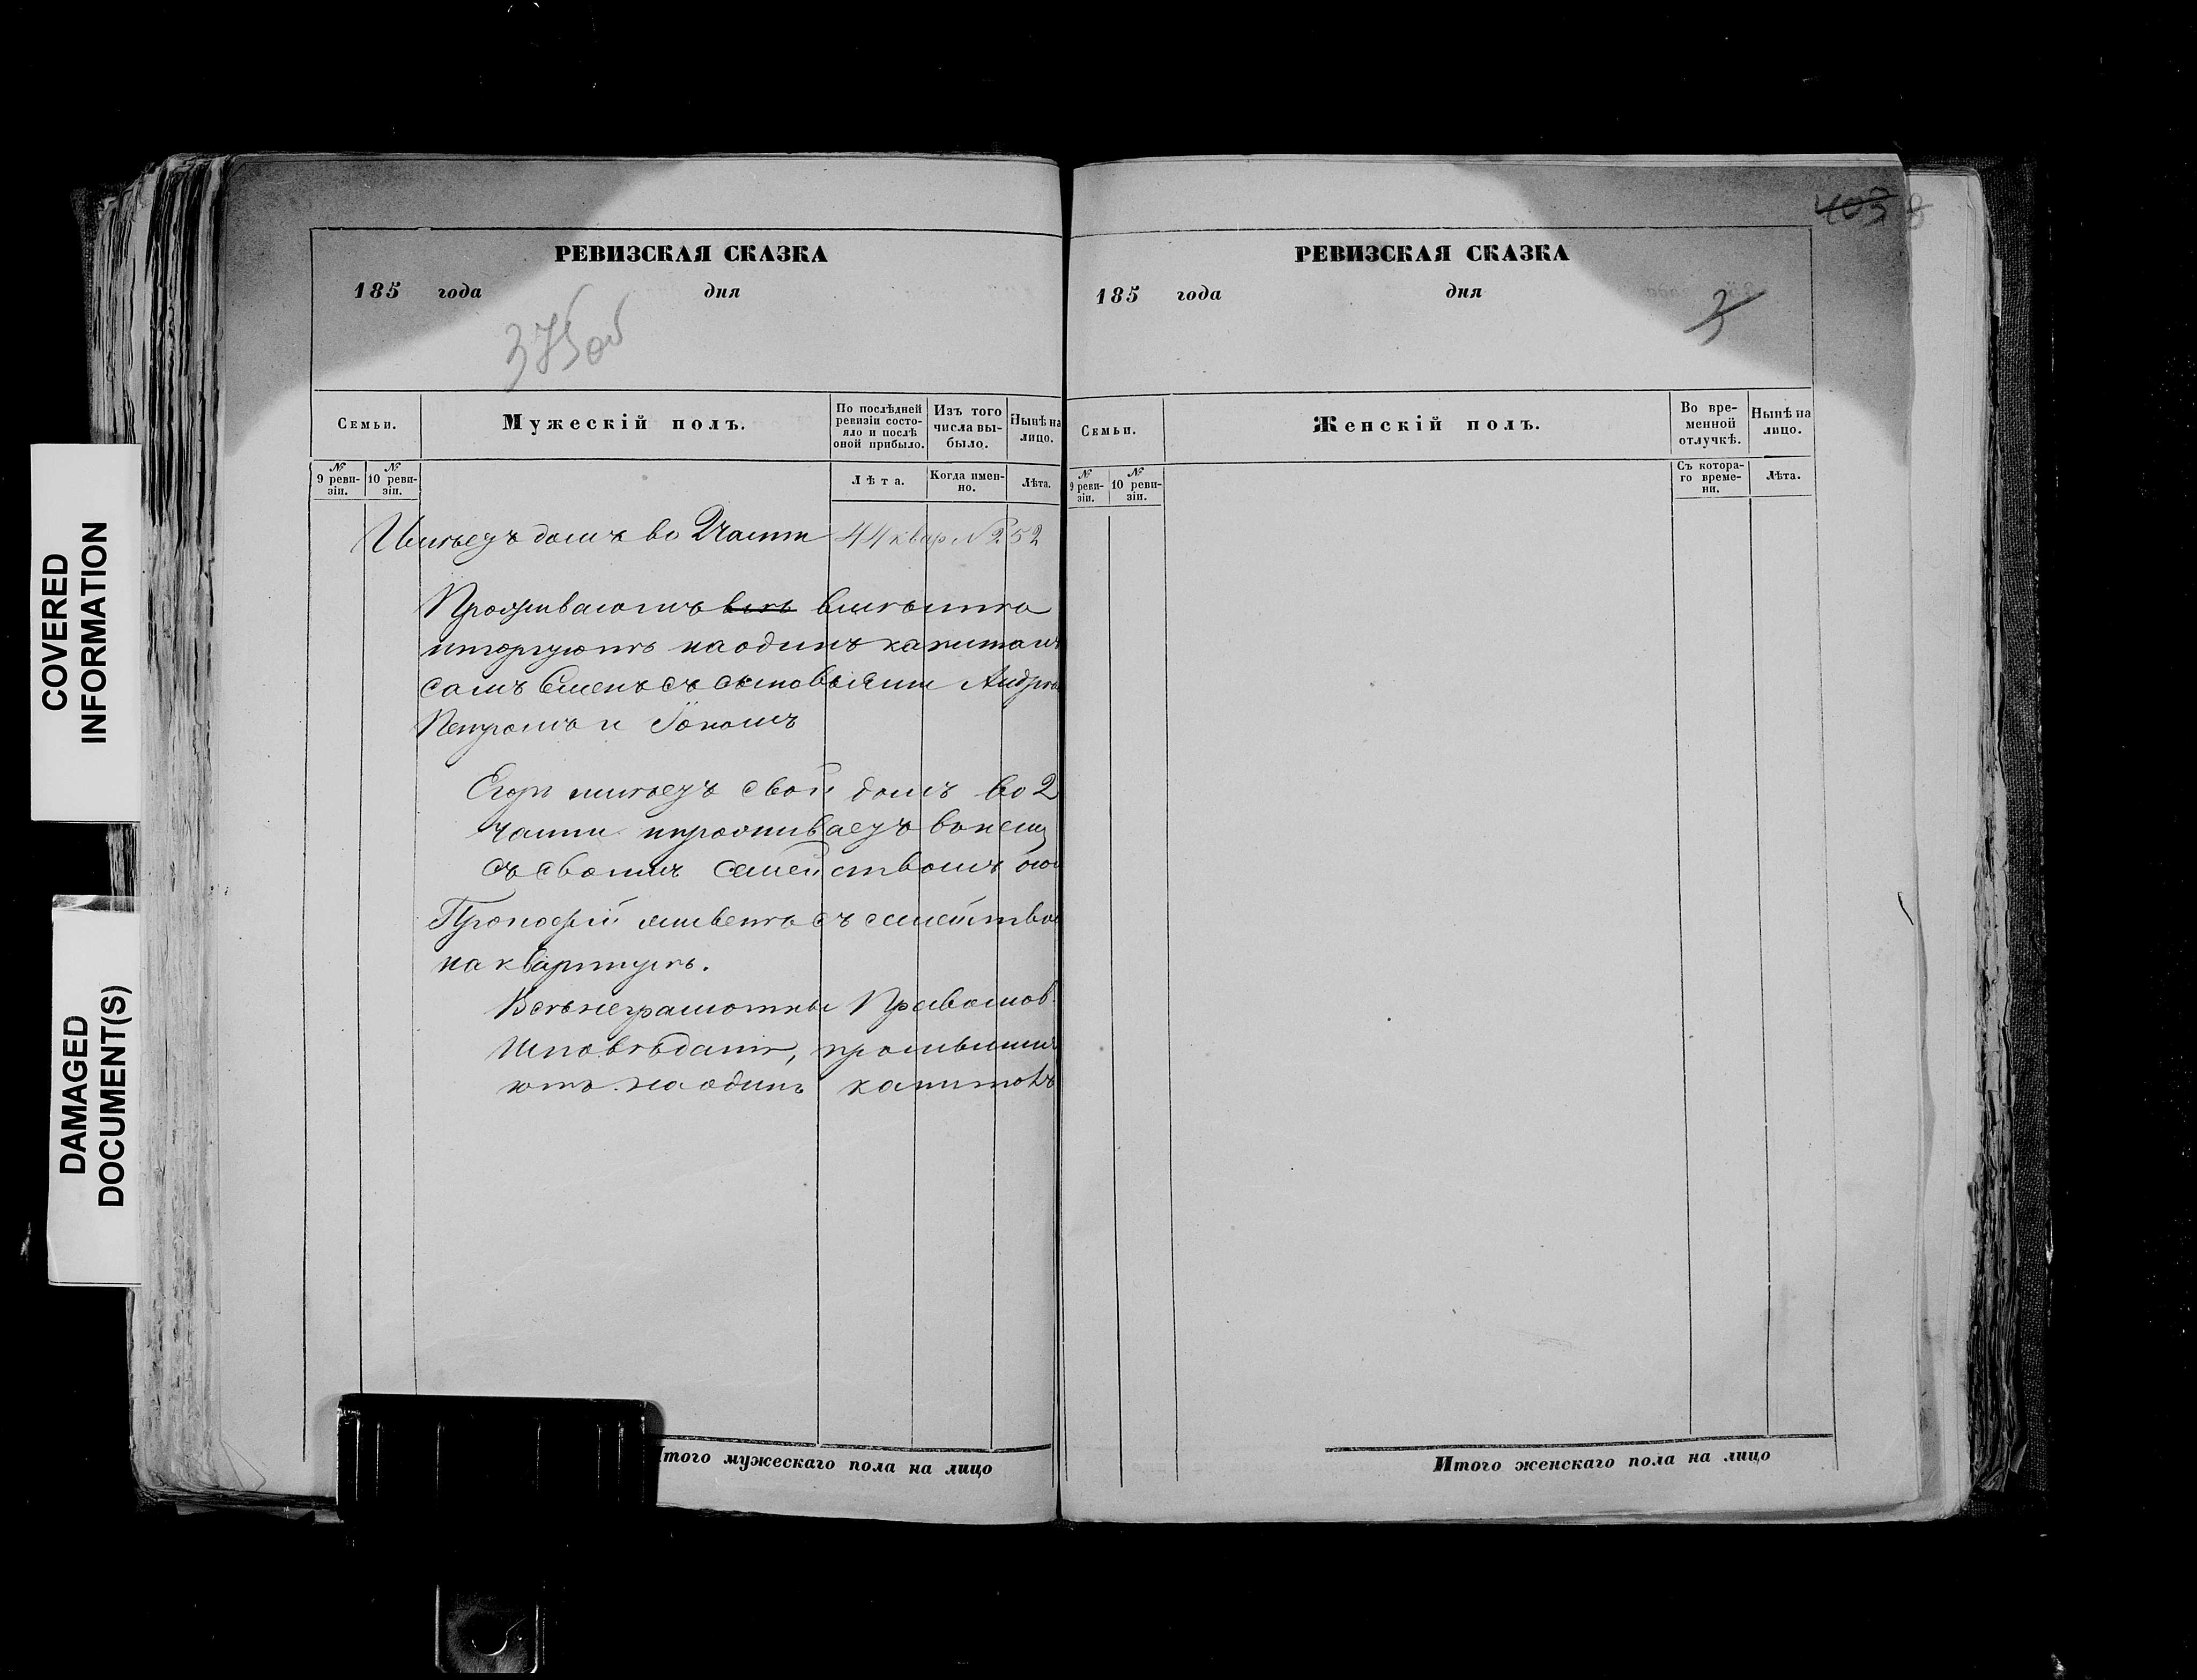 COVERED
INFORMATION
DAMAGED
DOCUMENT(S)
РЕВИЗСКАЯ СКАЗКА
185 года дня
375об
Семьи.
Мужескій полъ.
По послѣдней ревизіи состояло и послѣ оной прибыло.
Изъ того числа выбыло.
Нынѣ на лицо.
№ 9 ревизіи.
№ 10 ревизіи.
Лѣта.
Когда именно.
Лѣта.
Имѣеть домъ во 2 части 44 квар № 252
Проживаютъ всѣ вмѣстѣ
и торгуютъ на одинъ капиталъ
самъ Семенъ съ сыновьями Андрѣ
Петромъ и Іономъ
Егоръ имѣетъ свой домъ во 2
части и проживаетъ в онемъ
съ своимъ семействомъ
Прокофій живетъ съ семейтво
на квартирѣ.
Всѣ неграмотны Православ
исповѣданія,
ютъ на одинъ капиталъ
Итого мужескаго пола на лицо
403 8
РЕВИЗСКАЯ СКАЗКА
185 года дня
3
Семьи.
Женскій полъ.
Во временной отлучкѣ.
Нынѣ на лицо.
№ 9 ревизіи.
№ 10 ревизіи.
Съ котораго времени.
Лѣта.
Итого женскаго пола на лицо